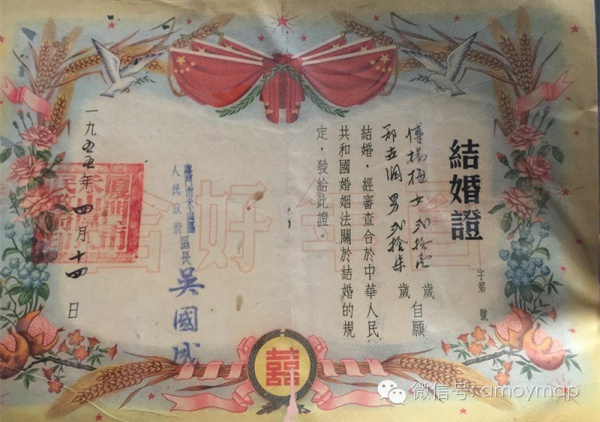 結婚證
字第 號
士 弍拾 歲
男 弍拾柒 歲 自願
結婚，經審查合於中華人民
共和國婚姻法關於結婚的規
定，發給此證。
廈門市禾山區
人民政府區長 吳國成
一九五五年四月十四日
合好年百
囍
微信号: amoymap